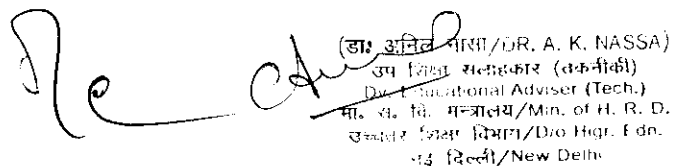 (डा॰ अनिल नासा/DR. A. K. NASSA)
उप शिक्षा सलाहकार (तकनीकी)
Dy. Educational Adviser (Tech.)
मा. सं. वि. मन्त्रालय/Min. of H. R. D.
उच्चतर शिक्षा विभाग/D/o Higr. Edn.
नई दिल्ली/New Delhi